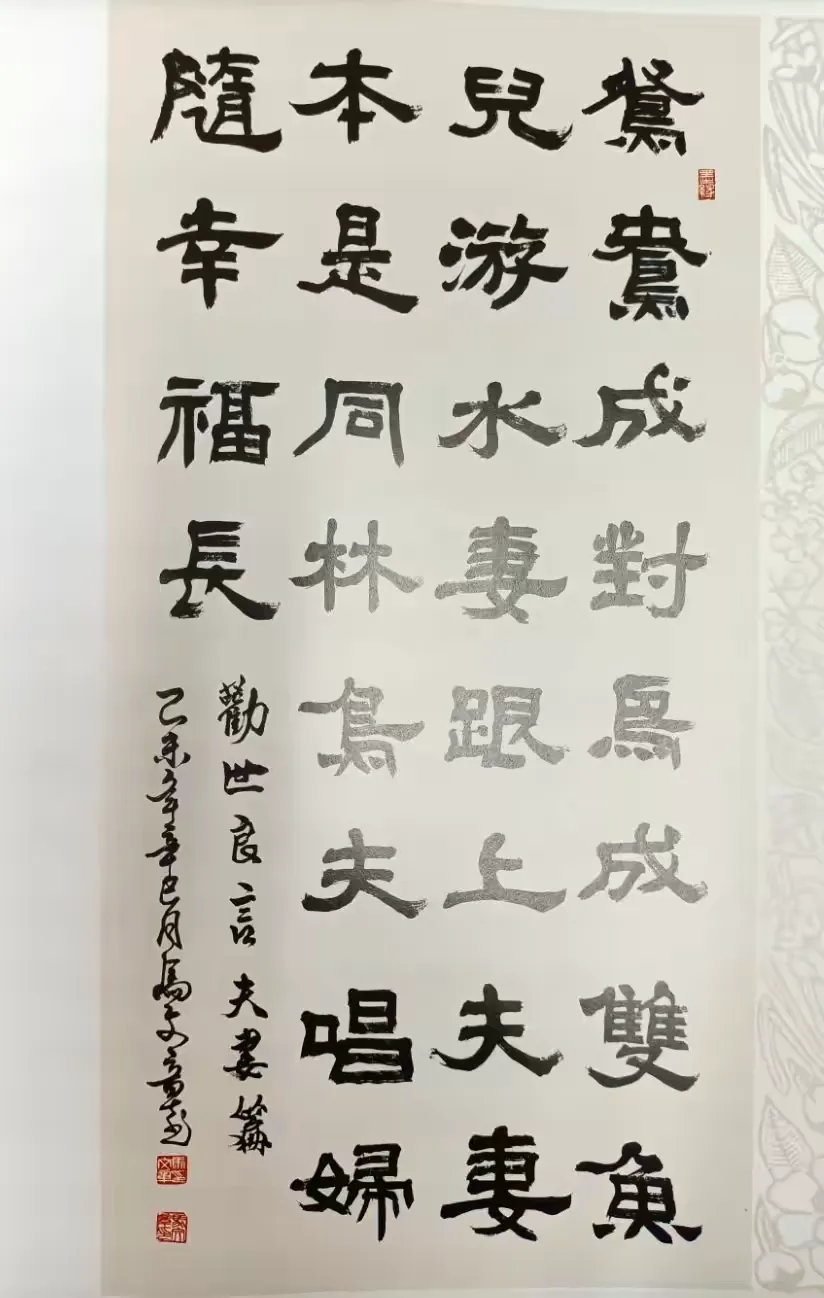 鴛鴦成對鳥成雙魚
兒游水妻跟上夫妻
本是同林鳥夫唱婦
隨幸福長
勸世良言夫妻篇
乙未年辛巳月馬文章題